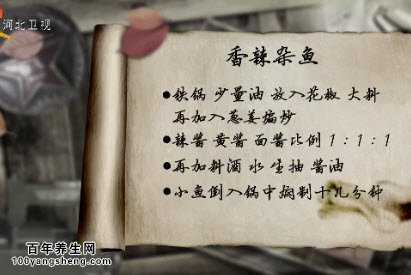 河北卫视
香辣杂鱼
●铁锅 少量油 放入花椒 大料
再加入葱姜煸炒
●辣酱 黄酱 面酱比例 1:1:1
●再加料酒 水 生抽 酱油
●小鱼倒入锅中焖制十几分钟
百年养生网
100yangsheng.com